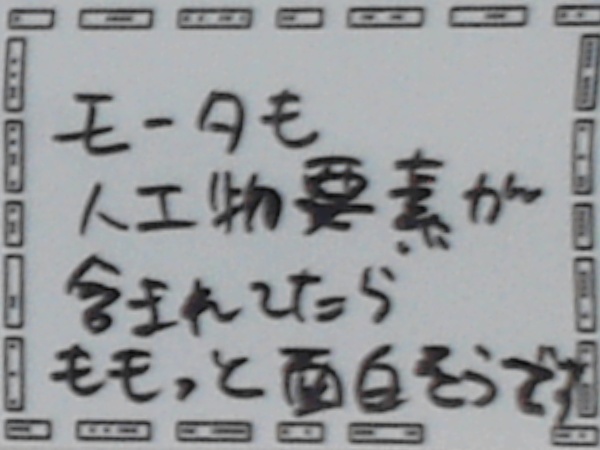 モータも
人工物要素が
含まれてたら
ももっと面白そうです